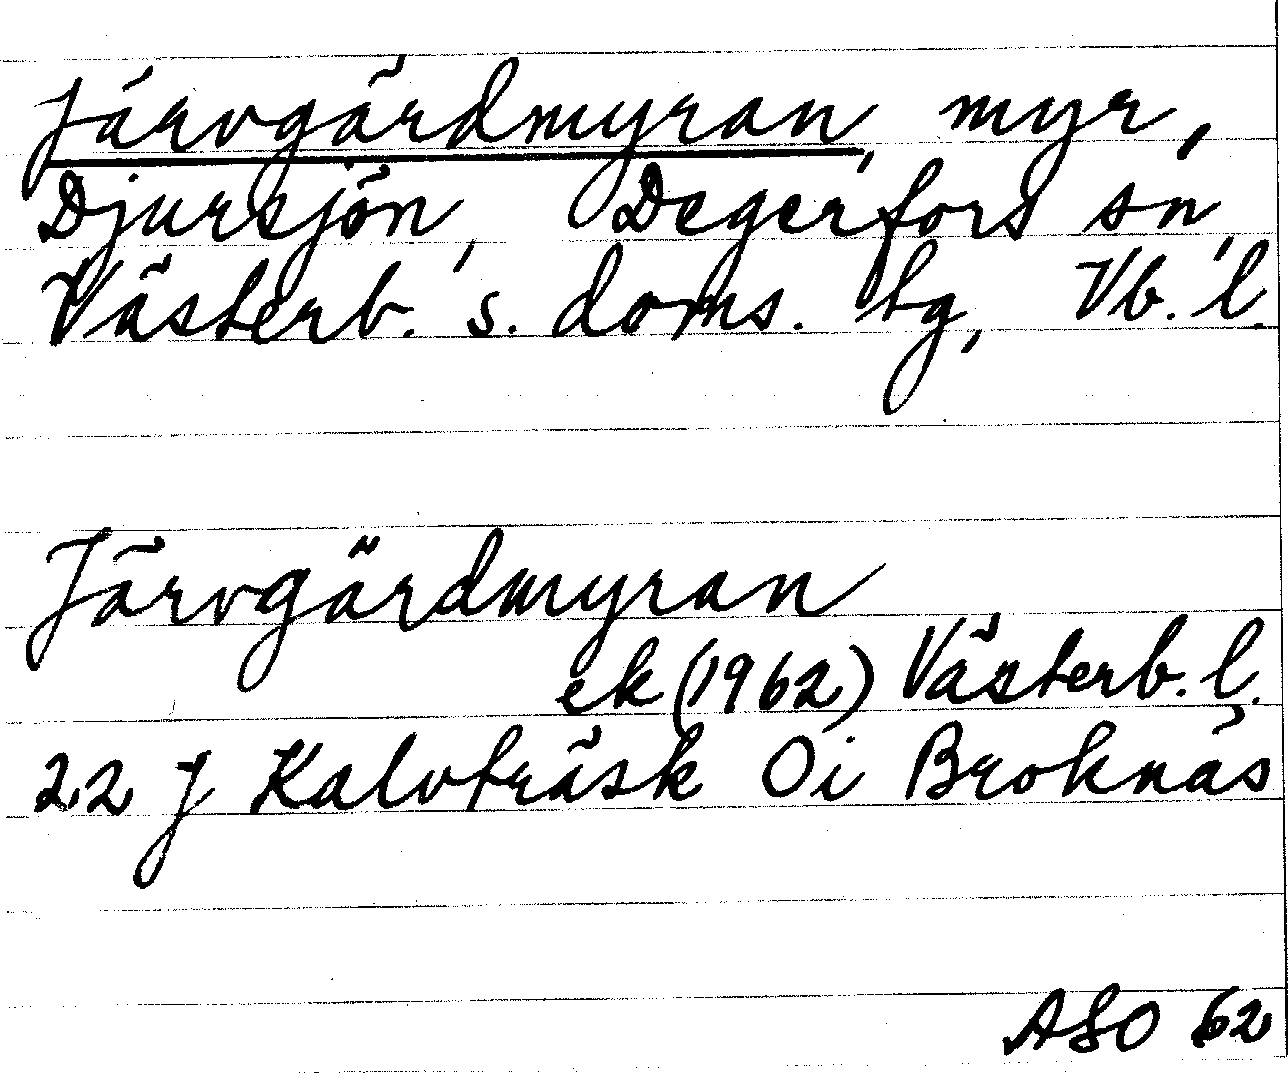 Järvgärdmyran, myr,
Djursjön, Degerfors sn,
Västerb. s. doms. tg, Vb. l.
Järvgärdmyran
ek (1962) Västerb. l.
22 J Kalvträsk Oi Broknäs
ASO 62